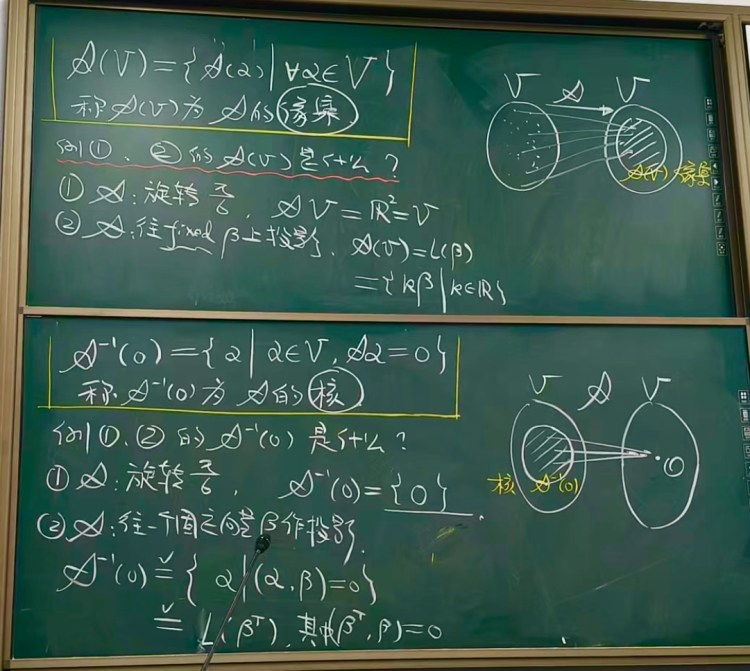 𝒜(V)={𝒜(α)|∀α∈V}
称𝒜(V)为𝒜的象集
例①、②的𝒜(V)是什么?
①𝒜:旋转π/6, 𝒜V=ℝ²=V
②𝒜:往fixed β上投影, 𝒜(V)=L(β)
={kβ|k∈ℝ}
V 𝒜 V
𝒜(V)象集
𝒜⁻¹(0)={α|α∈V,𝒜α=0}
称𝒜⁻¹(0)为𝒜的核
例①、②的𝒜⁻¹(0)是什么?
①𝒜:旋转π/6, 𝒜⁻¹(0)={0}.
②𝒜:往一个固定向量β作投影.
𝒜⁻¹(0)={α|(α,β)=0}
=L(β^T),其中(β^T,β)=0
V 𝒜 V
核 𝒜⁻¹(0)
0